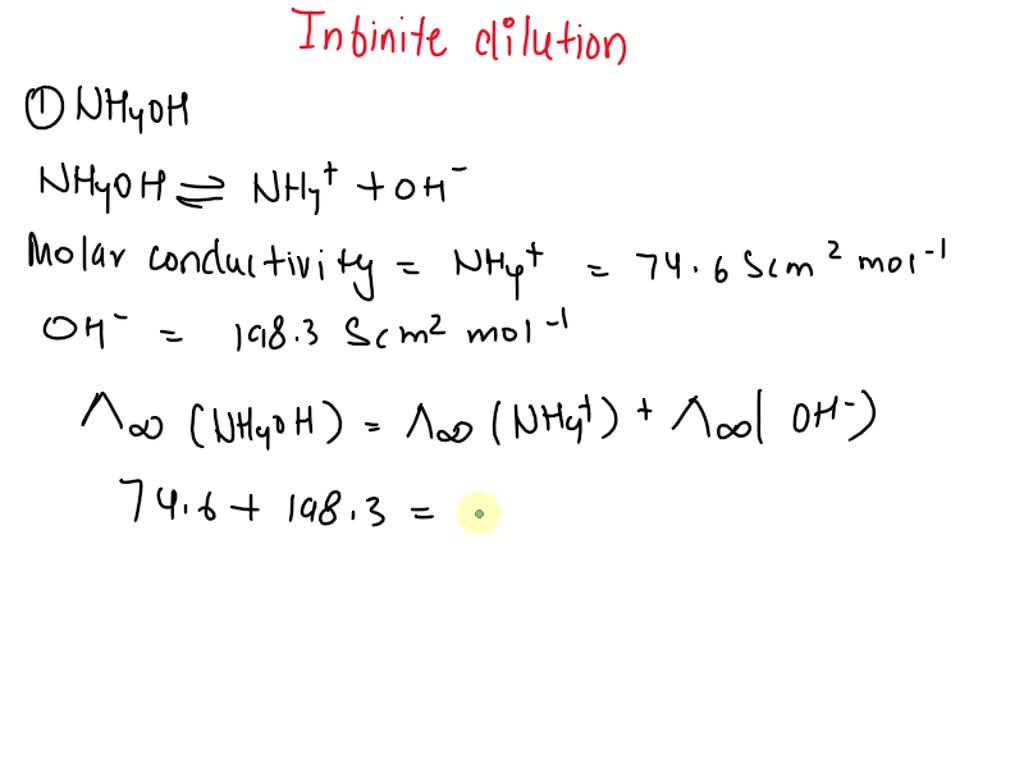 Infinite dilution
① NH4OH
NH4OH ⇌ NH4⁺ + OH⁻
Molar conductivity = NH4⁺ = 74.6 Scm² mol⁻¹
OH⁻ = 198.3 Scm² mol⁻¹
Λ∞ (NH4OH) = Λ∞ (NH4⁺) + Λ∞( OH⁻)
74.6 + 198.3 =